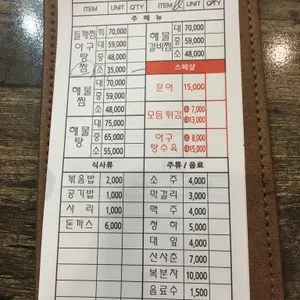 ITEM UNIT Q'TY ITEM UNIT Q'TY
주 메 뉴
특 70,000
대 59,000
중 48,000
소 35,000
아구
찜
해물찜
대 70,000
중 59,000
소 48,000
해물탕
대 75,000
중 65,000
소 55,000
해물
갈비찜
대 70,000
중 59,000
소 48,000
스페샬
문어 15,000
모듬튀김 소 7,000
대 13,000
아구
탕수육
소 8,000
대 15,000
식사류
볶음밥 2,000
공기밥 1,000
사리 1,000
돈까스 6,000
주류 / 음료
소주 4,000
막걸리 3,000
맥주 4,000
청하 5,000
대잎 4,000
산사춘 7,000
복분자 10,000
음료수 1,500